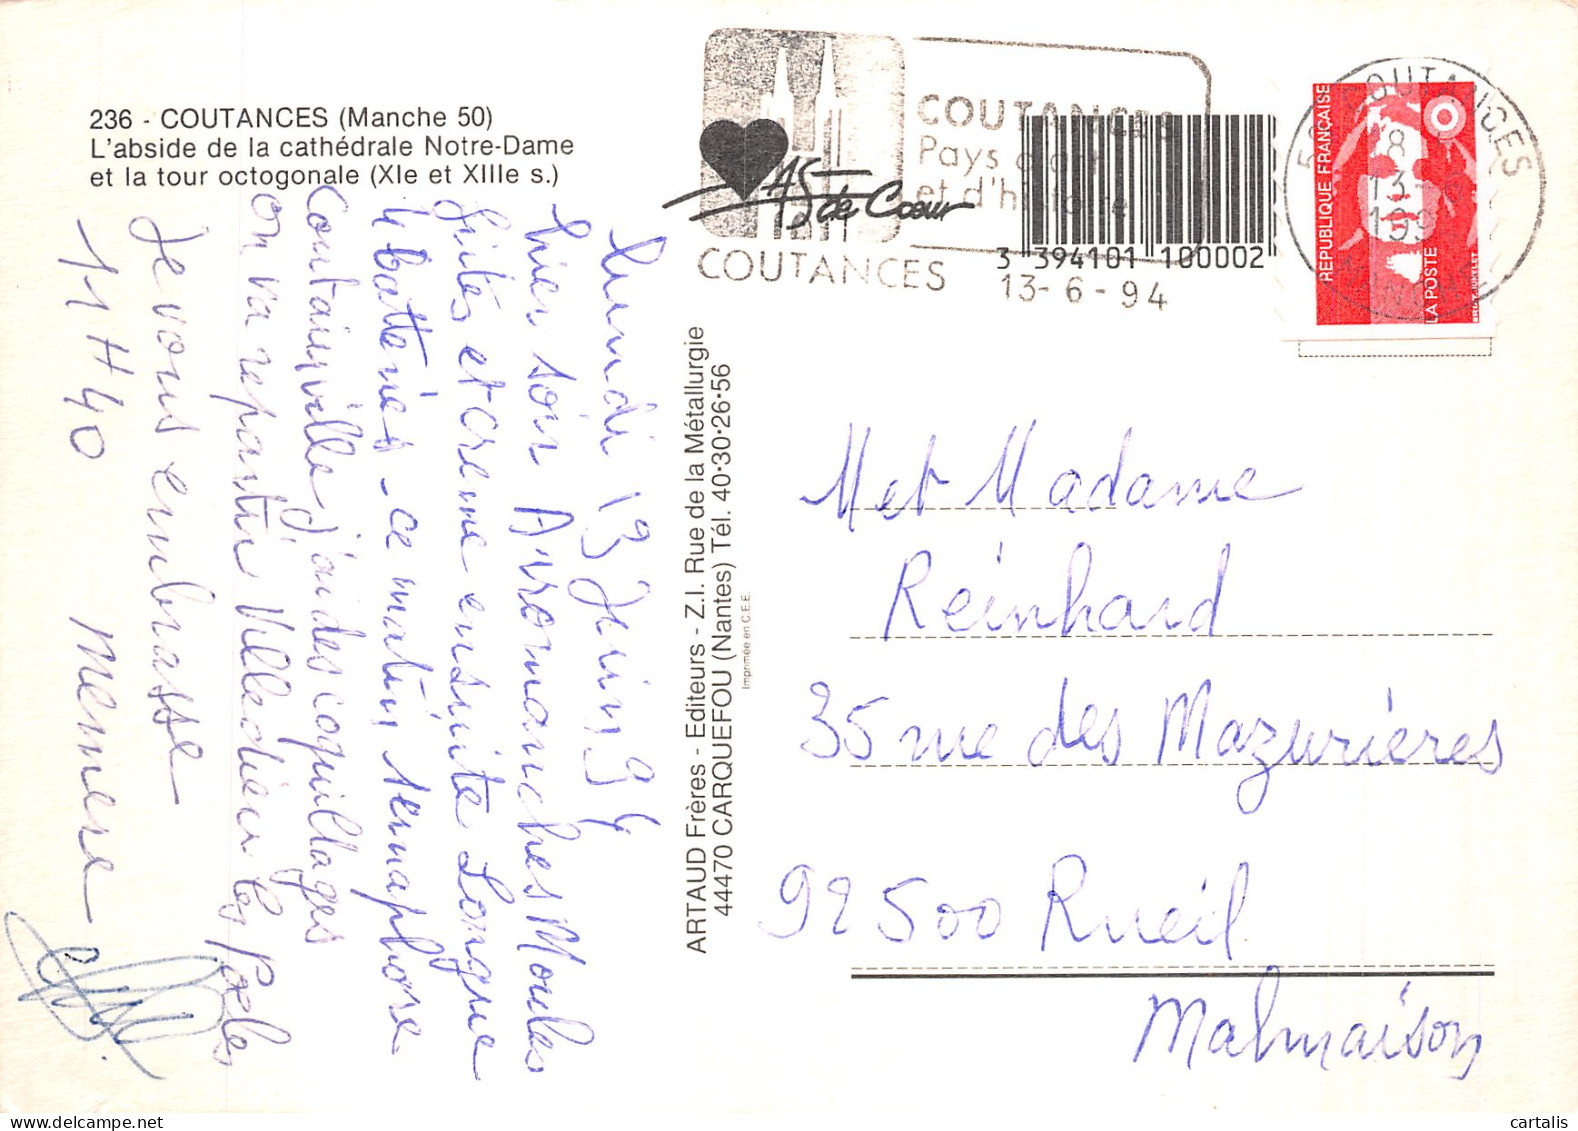 236 - COUTANCES (Manche 50)
L'abside de la cathédrale Notre-Dame
et la tour octogonale (XIe et XIIIe s.)
lundi 13 Juin 94
hier soir Arromanches Moules
frites et creme ensuite Longue
4 batteries - ce matin semaphore
Containville j'ai des coquillages
on va repartir Villedieu les Poeles
Je vous embrasse
11H40 Memere
ARTAUD Frères - Editeurs - Z.I. Rue de la Métallurgie
44470 CARQUEFOU (Nantes) Tél. 40·30·26·56
Imprimée en C.E.E.
COUTANCES
Pays d'art
et d'histoire
AS de Cœur
COUTANCES
13-6-94
3 394101 100002
50 COUTANCES
18
13-6
199
MANCHE
REPUBLIQUE FRANÇAISE
LA POSTE
M et Madame
Reinhard
35 rue des Mazurières
92500 Rueil
Malmaison
cartalis